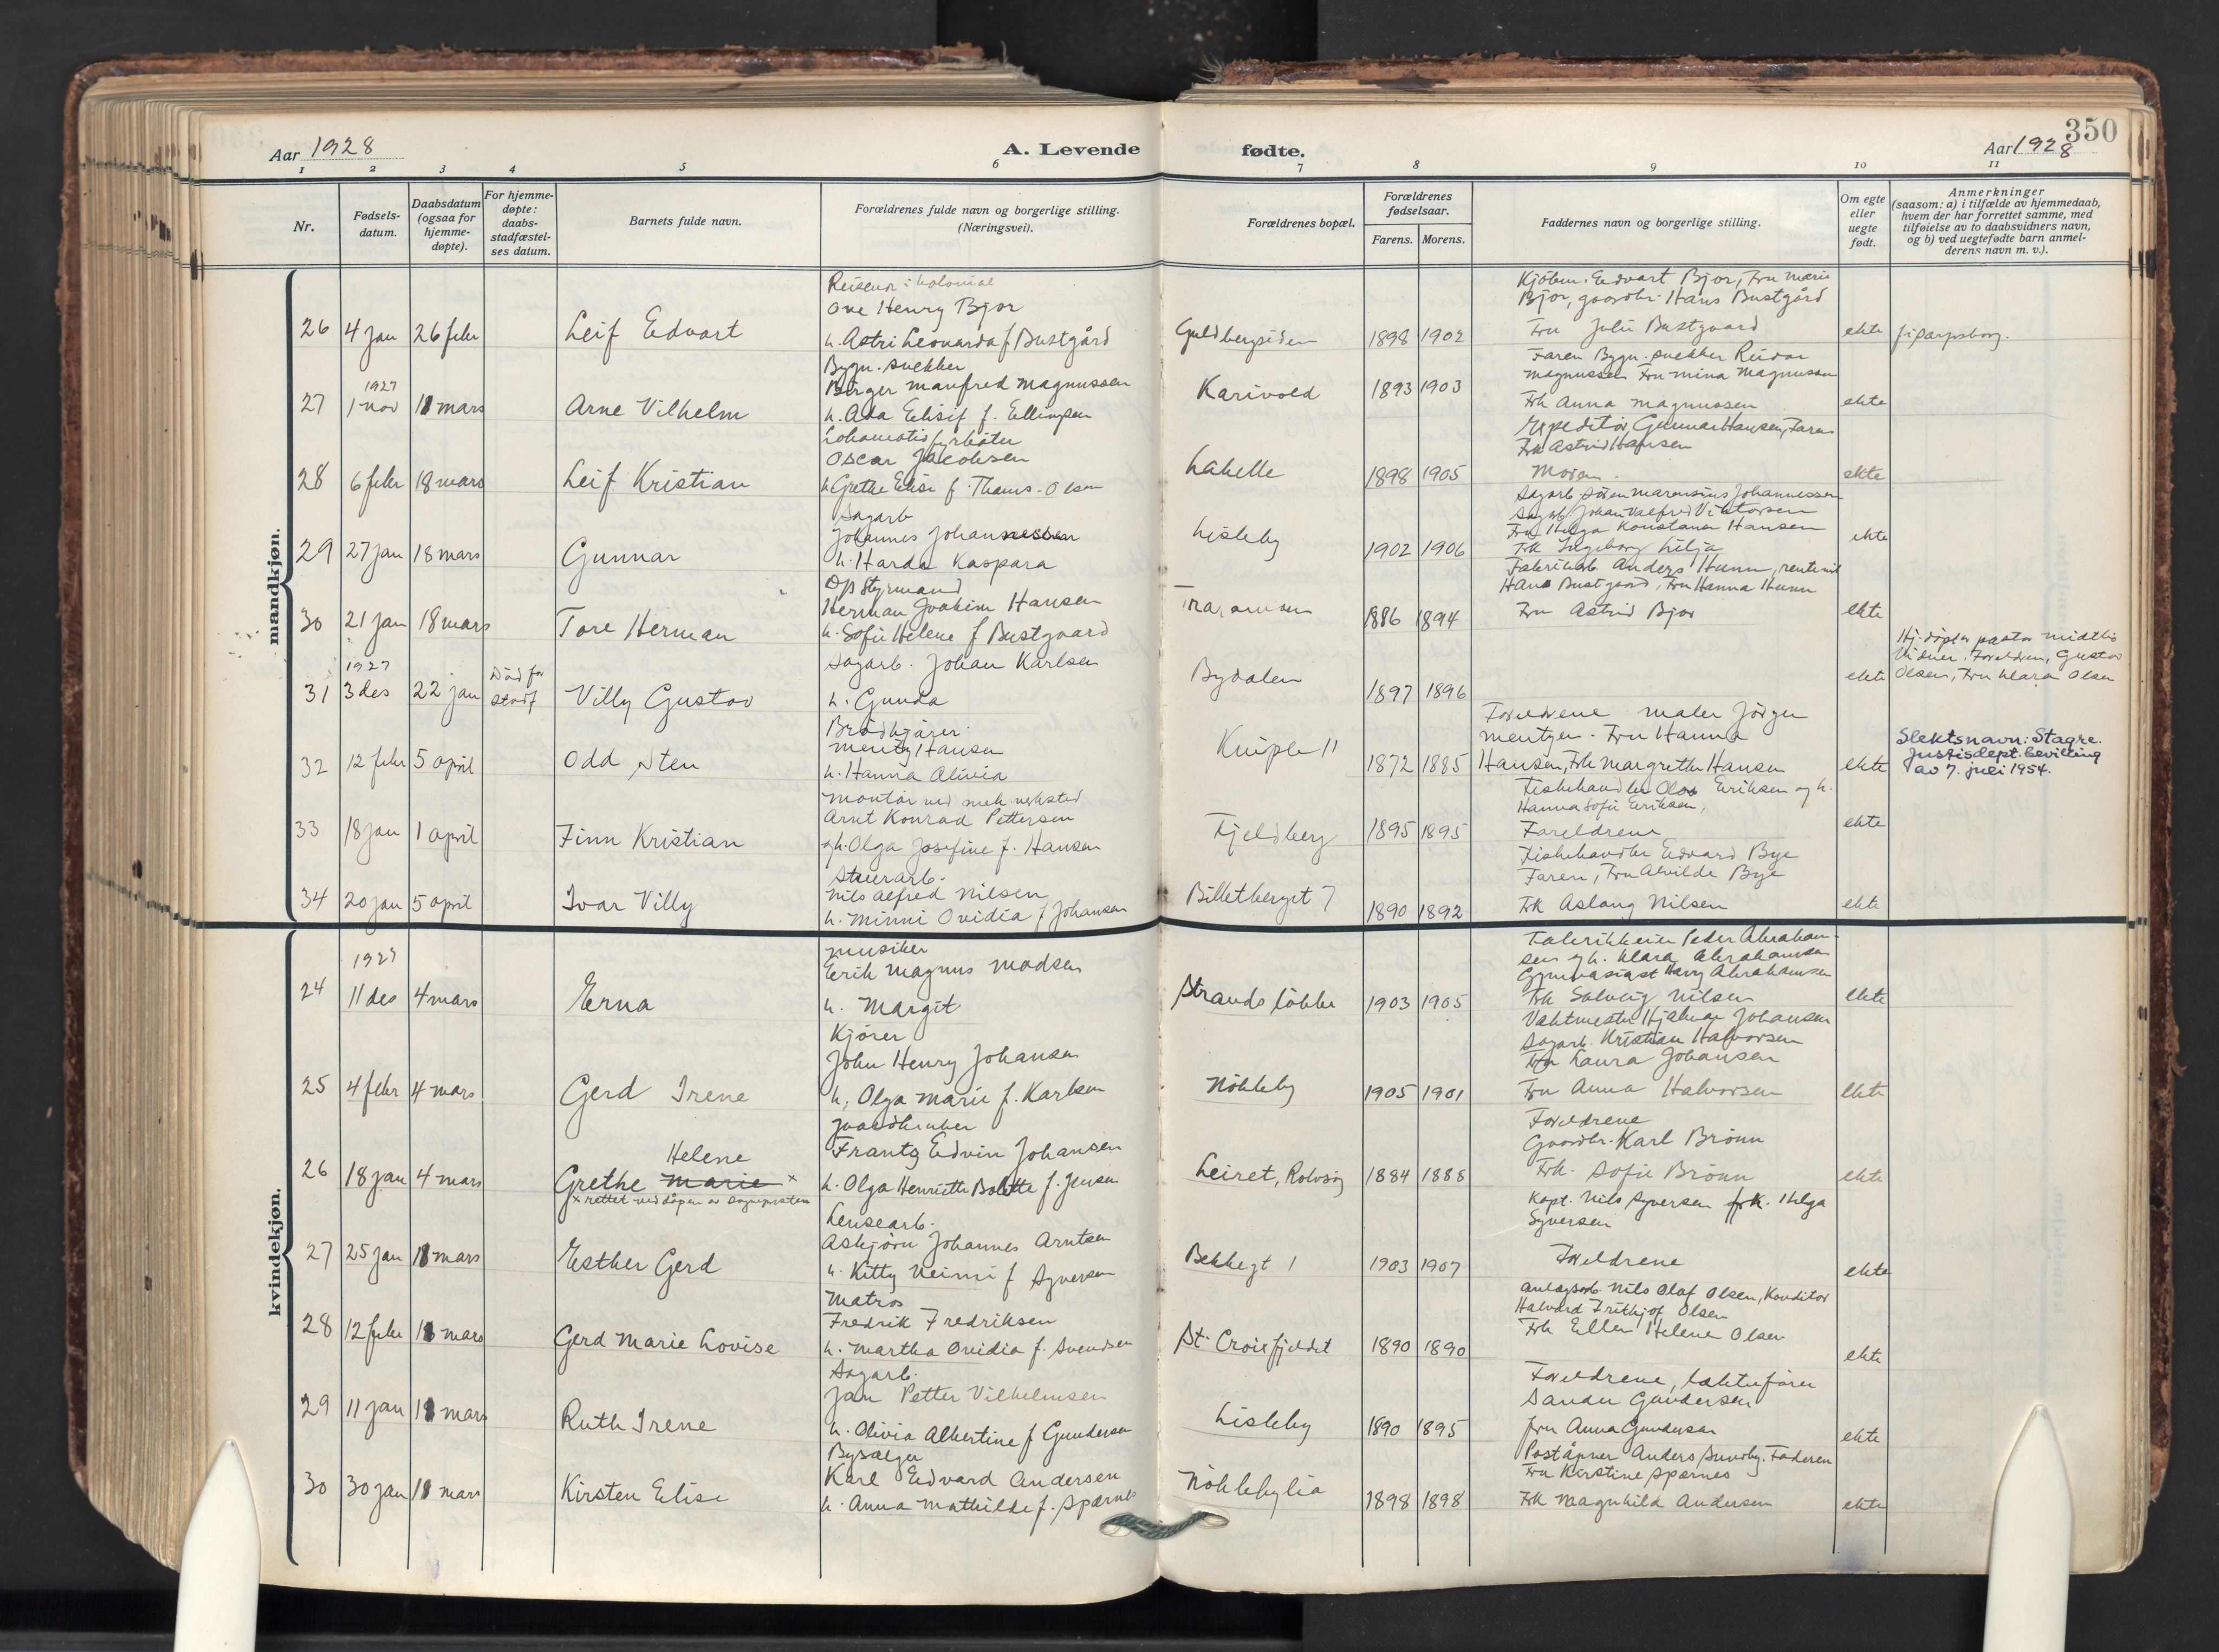 350
Aar 1928
A. Levende
fødte.
Aar 1928
1 2 3 4 5 6 7 8 9 10 11
Nr.
Fødsels-
datum.
Daabsdatum
(ogsaa for
hjemme-
døpte).
For hjemme-
døpte:
daabs-
stadfæstel-
ses datum.
Barnets fulde navn.
Forældrenes fulde navn og borgerlige stilling.
(Næringsvei).
Forældrenes bopæl.
Forældrenes
fødselsaar.
Farens. Morens.
Faddernes navn og borgerlige stilling.
Om egte
eller
uegte
født.
Anmerkninger
(saasom: a) i tilfælde av hjemmedaab,
hvem der har forrettet samme, med
tilføielse av to daabsvidners navn,
og b) ved uegtefødte barn anmel-
derens navn m. v.).
mandkjøn.
Reisende i kolonial
Ove Henry Bjor
26 4 jan 26 febr Leif Edvart
h. Astri Leonarda f Bustgård
Guldbergsiden 1898 1902
Kjøbm. Edvart Bjor, Fru Marie
Bjor, gaardbr. Hans Bustgård
Fru Julie Bustgaard
ekte
f i Sarpsborg.
Bygn. snekker
Birger Manfred Magnussen
1927
27 1 nov 18 mars Arne Vilhelm
h. Ada Elisif f. Ellingsen
Karivold 1893 1903
Faren Bygn. snekker Reidar
Magnussen Fru Mina Magnussen
Frk Anna Magnussen
ekte
Lokomotivfyrbøter
Oscar Jacobsen
28 6 febr 18 mars Leif Kristian
h Grethe Elise f. Thams-Olsen
Labelle 1898 1905
Expeditør Gunnar Hansen, Faren
Frk Astrid Hansen
Moren.
ekte
Sagarb
Johannes Johannessen
29 27 jan 18 mars Gunnar
h. Harda Kaspara
Lisleby 1902 1906
Sagarb. Søren Marensius Johannessen
Sagarb. Johan Valfred Viktorsen
Fru Helga Konstanse Hansen
Frk Ingeborg Lilja
ekte
D/S Styrmand
Herman Joakim Hansen
30 21 jan 18 mars Tore Herman
h. Sofie Helene f Bustgaard
1886 1894
Fabrikarb Anders Hunn, rentenist
Hans Bustgaard, Fru Hanna Hunn
Fru Astrid Bjor
ekte
1927
31 3 des 22 jan
Død før
stadf
Villy Gustav
Sagarb. Johan Karlsen
h. Gunda
Bydalen 1897 1896
ekte
Hj. døpt av pastor Midtbø
Vidner: Foreldren, Gustav
Olsen, Fru Klara Olsen
Brødkjører.
Mentz Hansen
32 12 febr 5 april Odd Sten
h. Hanna Olivia
Kniple 11 1872 1885
Foreldrene maler Jørgen
Mentzen. Fru Hanna
Hansen, Frk Margrethe Hansen
ekte
Slektsnavn: Stagre.
Justisdept. bevilling
av 7. juli 1954.
Montør ved mek. verksted
Arnt Konrad Pettersen
33 18 jan 1 april Finn Kristian
og h. Olga Josefine f. Hansen
Fjeldberg 1895 1895
Fiskehandler Olav Eriksen og h.
Hanna Sofie Eriksen,
Foreldrene
ekte
Stuerarb.
Nils Alfred Nilsen
34 20 jan 5 april Ivar Villy
h. Minni Ovidia f Johansen
Billetberget 7 1890 1892
Fiskehandler Edvard Bye
Faren, Fru Alvilde Bye
Frk Aslaug Nilsen
ekte
kvindekjøn.
Musiker
Erik Magnus Madsen
1927
24 11 des 4 mars Erna
h. Margit
Strands løkke 1903 1905
Fabrikkeier Peder Abraham-
sen og h. Klara Abrahamsen
Gymnasiast Harry Abrahamsen
Frk Solveig Nilsen
ekte
Kjører
John Henry Johansen
25 4 febr 4 mars Gerd Irene
h. Olga Marie f. Karlsen
Nøkleby 1905 1901
Vaktmester Hjalmar Johansen
Sagarb. Kristian Halvorsen
Fru Laura Johansen
Fru Anna Halvorsen
ekte
Gaardbruker
Frantz Edvin Johansen
Helene
26 18 jan 4 mars Grethe Marie x
x rettet ved dåpen av sogneprsten
h. Olga Henriette Bolette f. Jensen
Leiret, Rolvsøy 1884 1888
Foreldrene
Gaardbr. Karl Brönn
Frk. Sofie Brönn
ekte
Lensearb.
Asbjørn Johannes Arntsen
27 25 jan 18 mars Esther Gerd
h. Kitty Heimi f Syversen
Bekkegt 1 1903 1907
Kapt. Nils Syversen frk. Helga
Syversen
Foreldrene
ekte
Matros
Fredrik Fredriksen
28 12 febr 18 mars Gerd Marie Lovise
h. Martha Ovidia f. Svendsen
St. Croixfjeldet 1890 1890
Anlagsarb. Nils Olaf Olsen, Konditor
Halvard Frithjof Olsen
Frk Ellen Helene Olsen
ekte
Sagarb.
Jan Petter Vilhelmsen
29 11 jan 18 mars Ruth Irene
h. Olivia Albertine f Gundersen
Lisleby 1890 1895
Foreldrene, lekterfører
Sander Gundersen
fru Anna Gundersen
ekte
Bysælger
Karl Edvard Andersen
30 30 jan 18 mars Kirsten Elise
h. Anna Mathilde f. Spærnes
Nøklebylia 1898 1898
Poståpner Anders Sundby. Faderen
Fru Kirstine Spærnes
Frk Magnhild Andersen
ekte